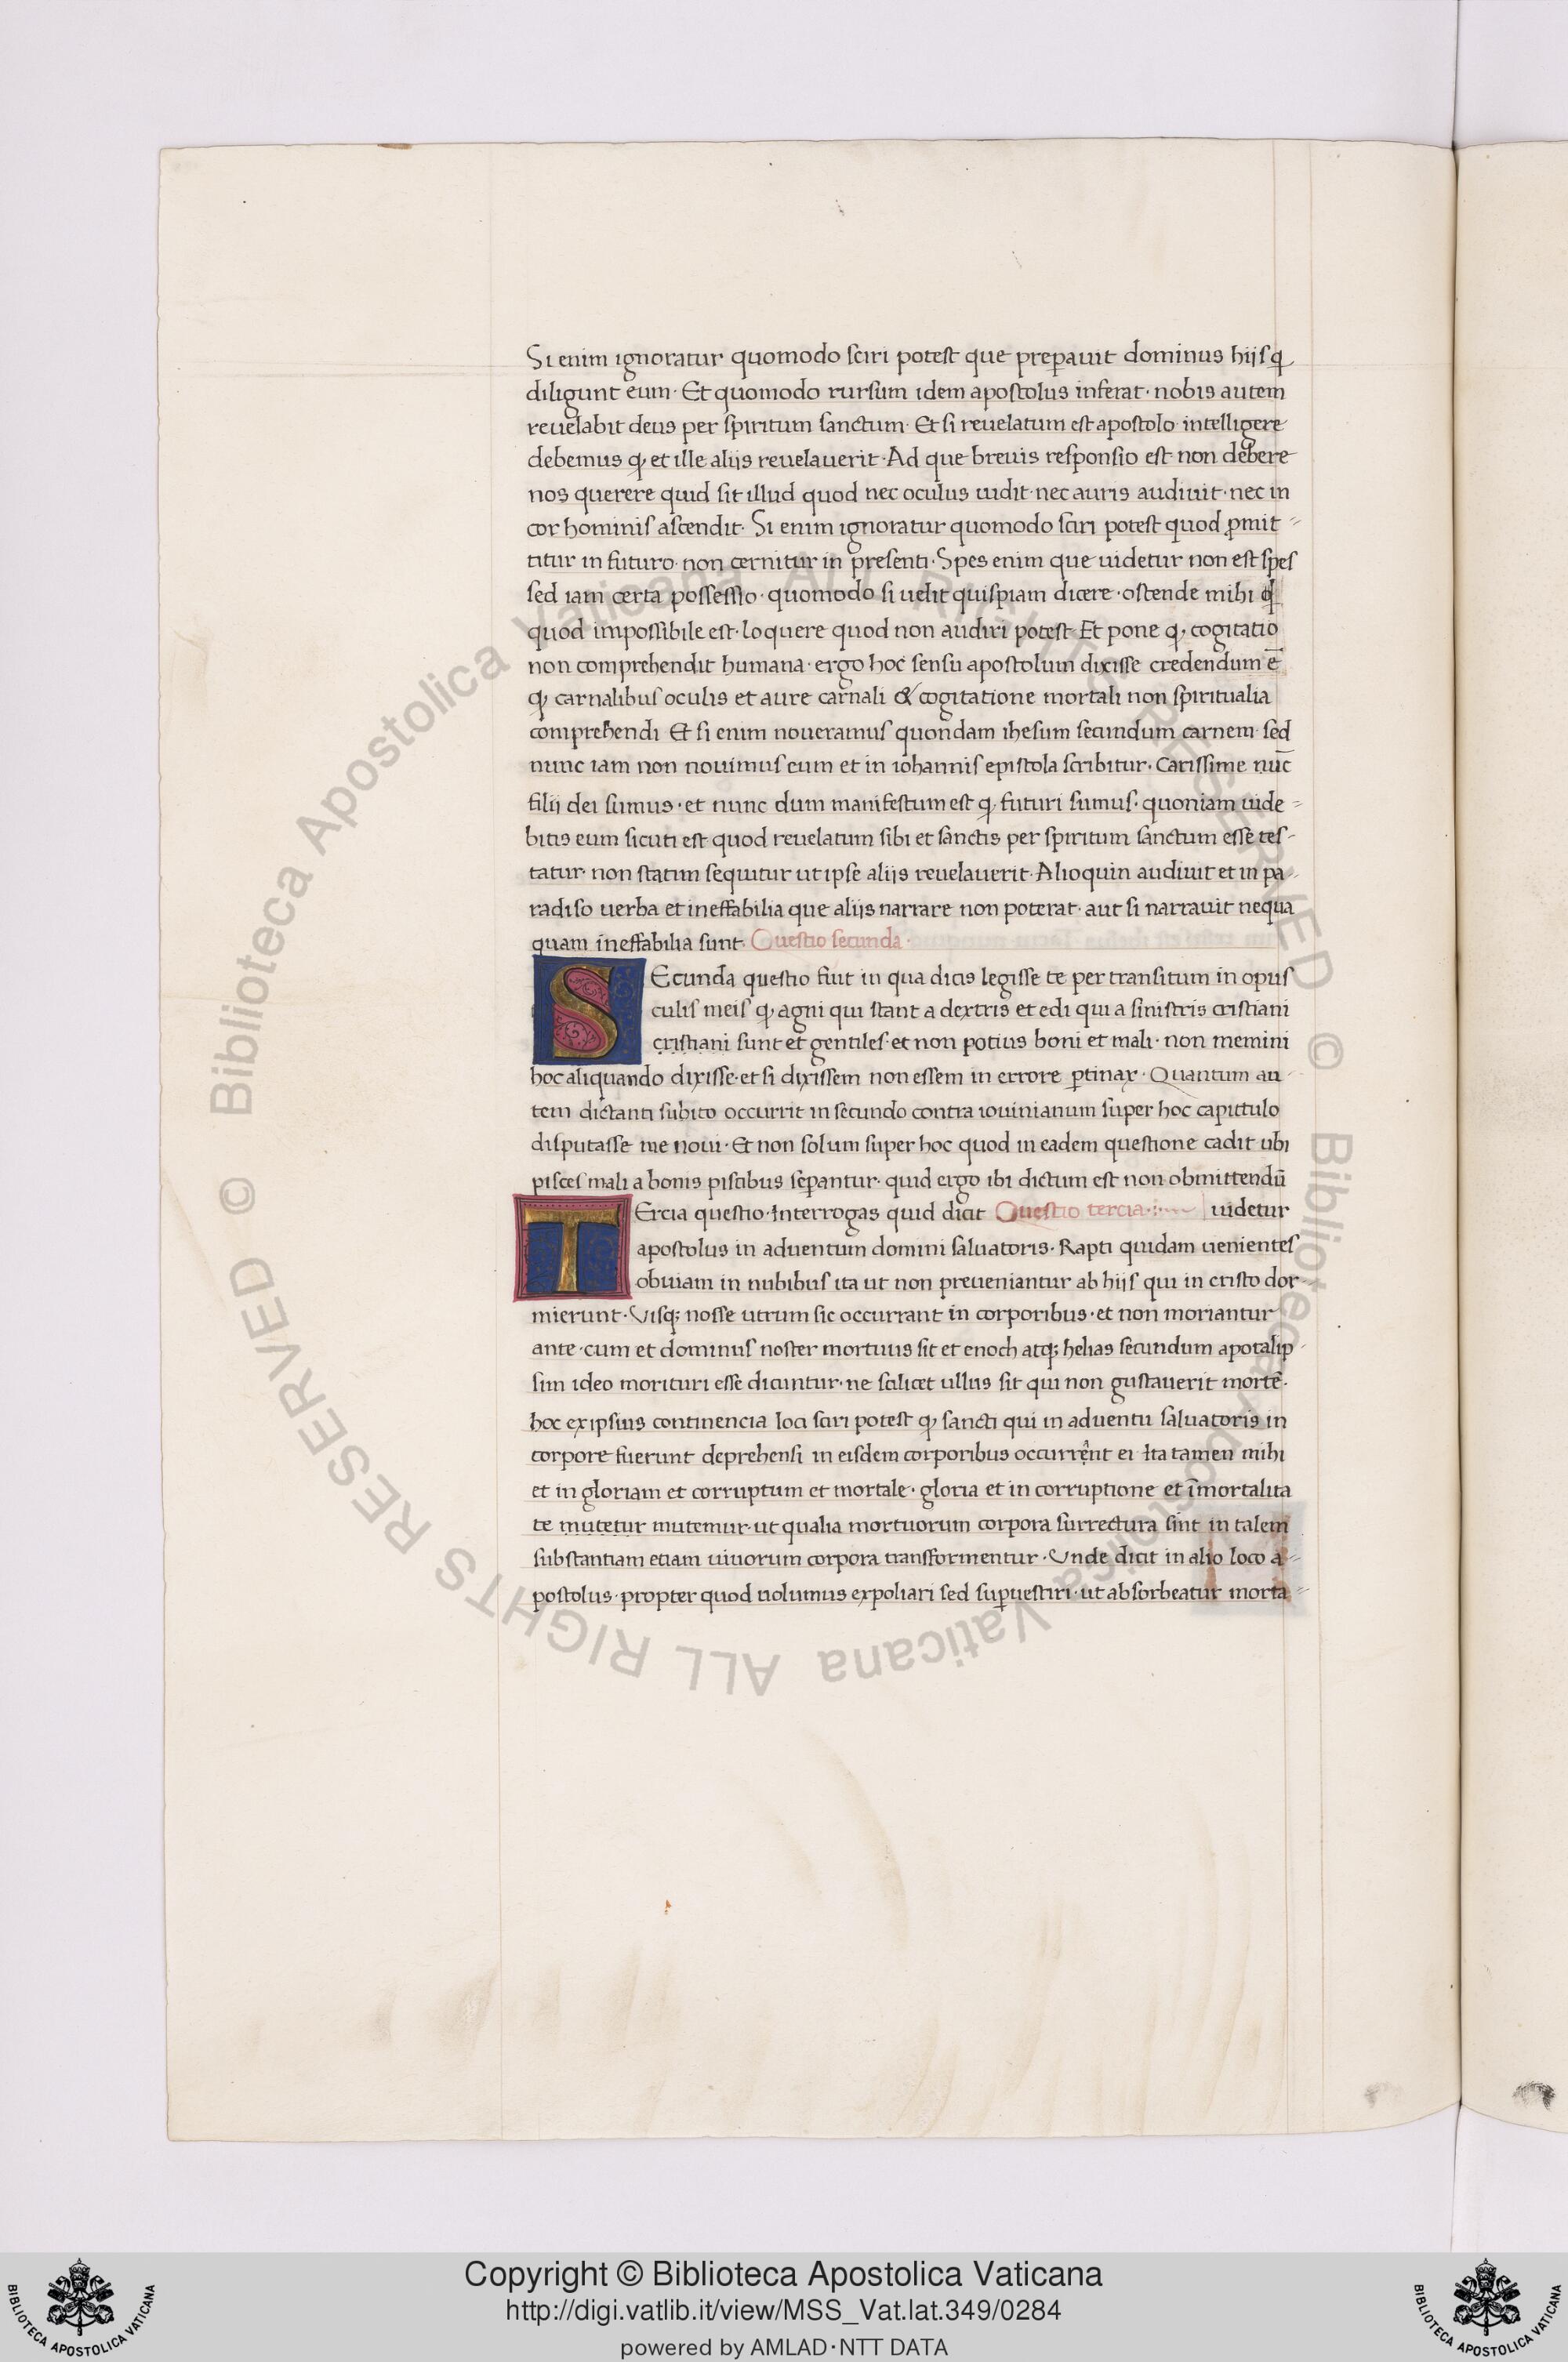 Si enim ignoratur quomodo sciri potest que preꝑauit dominus hijs q̣
diligunt eum · Et quomodo rursum idem apostolus inferat · nobis autem
reuelabit deus per spiritum sanctum · Et si reuelatum est apostolo intelligere
debemus ꝙ et ille aliis reuelauerit · Ad que breuis responsio est non debere
nos querere quid sit illud quod nec oculus uidit · nec auris audiuit · nec in
cor hominis ascendit · Si enim ignoratur quomodo sciri potest quod ꝓmit-
titur in futuro · non cernitur in presenti · Spes enim que uidetur non est spes
sed iam certa possessio · quomodo si uelit quispiam dicere · ostende mihi
quod impossibile est · loquere quod non audiri potest Et pone ꝙ cogitatio
non comprehendit humana · ergo hoc sensu apostolum dixisse credendum ē
ꝙ carnalibus oculis et aure carnali & cogitatione mortali non spiritualia
comprehendi Et si enim noueramus quondam ihesum secundum carnem · sed
nunc iam non nouimus eum et in iohannis epistola scribitur · Carissime nūc
filii dei sumus · et nunc dum manifestum est ꝙ futuri sumus · quoniam uide-
bitis eum sicuti est quod reuelatum sibi et sanctis per spiritum sanctum esse tes-
tatur · non statim sequitur ut ipse aliis reuelauerit · Alioquin audiuit et in pa-
radiso uerba et ineffabilia que aliis narrare non poterat · aut si narrauit nequa
quam ineffabilia sunt · Questio secunda ·
SEcunda questio fuit in qua dicis legisse te per transitum in opus
culis meis ꝙ agni qui stant a dextris et edi qui a sinistris cristiani
cristiani sunt et gentiles · et non potius boni et mali · non memini
hoc aliquando dixisse · et si dixissem non essem in errore ꝑtinax · Quantum au-
tem dictanti subito occurrit in secundo contra iouinianum super hoc capittulo
disputasse me noui · Et non solum super hoc quod in eadem questione cadit ubi
pisces mali a bonis piscibus seꝑantur · quid ergo ibi dictum est non obmittendū
TErcia questio · Interrogas quid dicit Questio tercia · uidetur
apostolus in aduentum domini saluatoris · Rapti quidam uenientes
obuiam in nubibus ita ut non preueniantur ab hiis qui in cristo dor-
mierunt · Visqȝ nosse utrum sic occurrant in corporibus · et non moriantur
ante · cum et dominus noster mortuus sit et enoch atqȝ helias secundum apotalip-
sim ideo morituri esse dicuntur · ne scilicet ullus sit qui non gustauerit mortē ·
hoc ex ipsius continencia loci sciri potest ꝙ sancti qui in aduentu saluatoris in
corpore fuerunt deprehensi in eisdem corporibus occurrent ei Ita tamen mihi
et in gloriam et corruptum et mortale · gloria et in corruptione et īmortalita
te mutetur mutemur · ut qualia mortuorum corpora surrectura sint in talem
substantiam etiam uiuorum corpora transformentur · Vnde dicit in alio loco a-
postolus · propter quod uolumus expoliari sed suꝑuestiri · ut absorbeatur morta-
© Biblioteca Apostolica Vaticana ALL RIGHTS RESERVED © Biblioteca Apostolica Vaticana ALL RIGHTS RESERVED
BIBLIOTECA APOSTOLICA VATICANA
Copyright © Biblioteca Apostolica Vaticana
http://digi.vatlib.it/view/MSS_Vat.lat.349/0284
powered by AMLAD·NTT DATA
BIBLIOTECA APOSTOLICA VATICANA